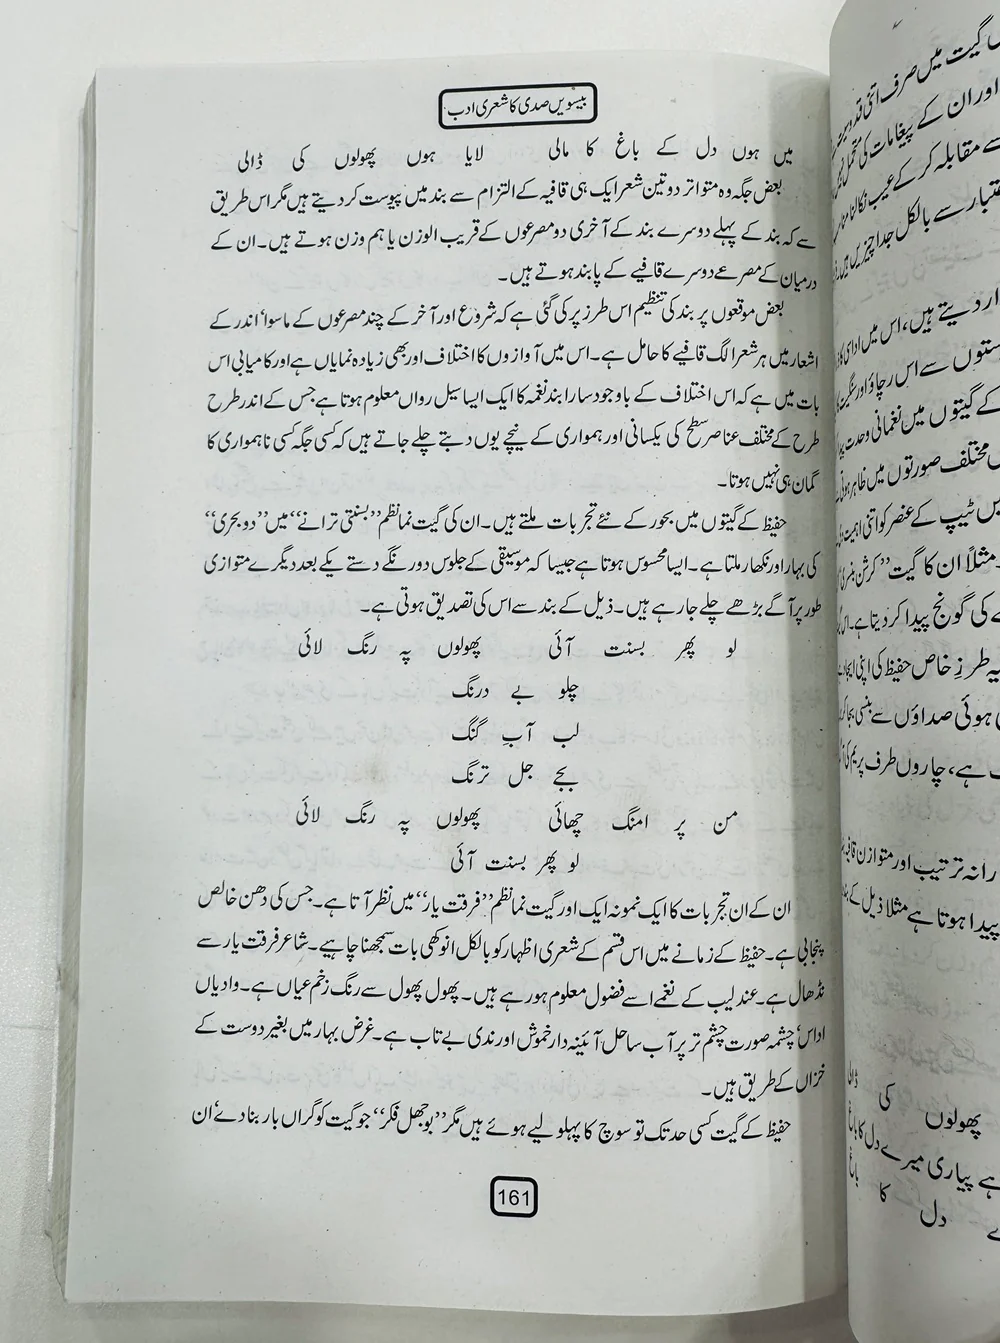 بیسویں صدی کا شعری ادب
میں ہوں دل کے باغ کا مالی لایا ہوں پھولوں کی ڈالی
بعض جگہ وہ متواتر دو تین شعر ایک ہی قافیہ کے التزام سے بند میں پیوست کر دیتے ہیں مگر اس طریق
سے کہ بند کے پہلے دوسرے بند کے آخری دو مصرعوں کے قریب الوزن یا ہم وزن ہوتے ہیں۔ ان کے
درمیان کے مصرعے دوسرے قافیے کے پابند ہوتے ہیں۔
بعض موقعوں پر بند کی تنظیم اس طرز پر کی گئی ہے کہ شروع اور آخر کے چند مصرعوں کے ماسوا‘ اندر کے
اشعار میں ہر شعر الگ قافیے کا حامل ہے۔ اس میں آوازوں کا اختلاف اور بھی زیادہ نمایاں ہے اور کامیابی اس
بات میں ہے کہ اس اختلاف کے باوجود سارا بند نغمہ کا ایک ایسا سیل رواں معلوم ہوتا ہے جس کے اندر طرح
طرح کے مختلف عناصر سطح کی یکسانی اور ہمواری کے نیچے یوں دبتے چلے جاتے ہیں کہ کسی جگہ کسی ناہمواری کا
گمان ہی نہیں ہوتا۔
حفیظ کے گیتوں میں بحور کے نئے تجربات ملتے ہیں۔ ان کی گیت نما نظم ’’بسنتی ترانے‘‘ میں ’’دو بحری‘‘
کی بہار اور نکھار ملتا ہے۔ ایسا محسوس ہوتا ہے جیسا کہ موسیقی کے جلوس دو رنگے دستے یکے بعد دیگرے متوازی
طور پر آگے بڑھے چلے جا رہے ہیں۔ ذیل کے بند سے اس کی تصدیق ہوتی ہے۔
لو پھر بسنت آئی پھولوں پہ رنگ لائی
چلو بے درنگ
لب آب گنگ
بجے جل ترنگ
من پر امنگ چھائی پھولوں پہ رنگ لائی
لو پھر بسنت آئی
ان کے ان تجربات کا ایک نمونہ ایک اور گیت نما نظم ’’فرقت یار‘‘ میں نظر آتا ہے۔ جس کی دھن خالص
پنجابی ہے۔ حفیظ کے زمانے میں اس قسم کے شعری اظہار کو بالکل انوکھی بات سمجھنا چاہیے۔ شاعر فرقت یار سے
نڈھال ہے۔ عندلیب کے نغمے اسے فضول معلوم ہو رہے ہیں۔ پھول پھول سے رنگ زخم عیاں ہے۔ وادیاں
اداس‘ چشمہ صورت چشم تر پر آب ساحل آئینہ دار خموش اور ندی بے تاب ہے۔ غرض بہار میں بغیر دوست کے
خزاں کے طریق ہیں۔
حفیظ کے گیت کسی حد تک تو سوچ کا پہلو لیے ہوئے ہیں مگر ’’بوجھل فکر‘‘ جو گیت کو گراں بار بنا دے‘ ان
161
گیت میں صرف اتنی
اور ان کے پیغامات کی
مقابلہ کر کے عیب نکالنا
سے بالکل جدا چیزیں ہیں۔
دیتے ہیں، اس میں ادای
سے اس رچاؤ اور
کے گیتوں میں نغماتی وحدت
مختلف صورتوں میں ظاہر
ٹیپ کے عنصر کو اتنی اہمیت
مثلاً ان کا گیت ’’کرشن
کی گونج پیدا کر دیتا ہے۔
یہ طرز خاص حفیظ کی اپنی
ہوئی صداؤں سے
ہے، چاروں طرف پریم
ترتیب اور متوازن
پیدا ہوتا ہے مثلاً ذیل کے
پھولوں کی
ہے پیاری میرے دل کا باغ
دل کا باغ